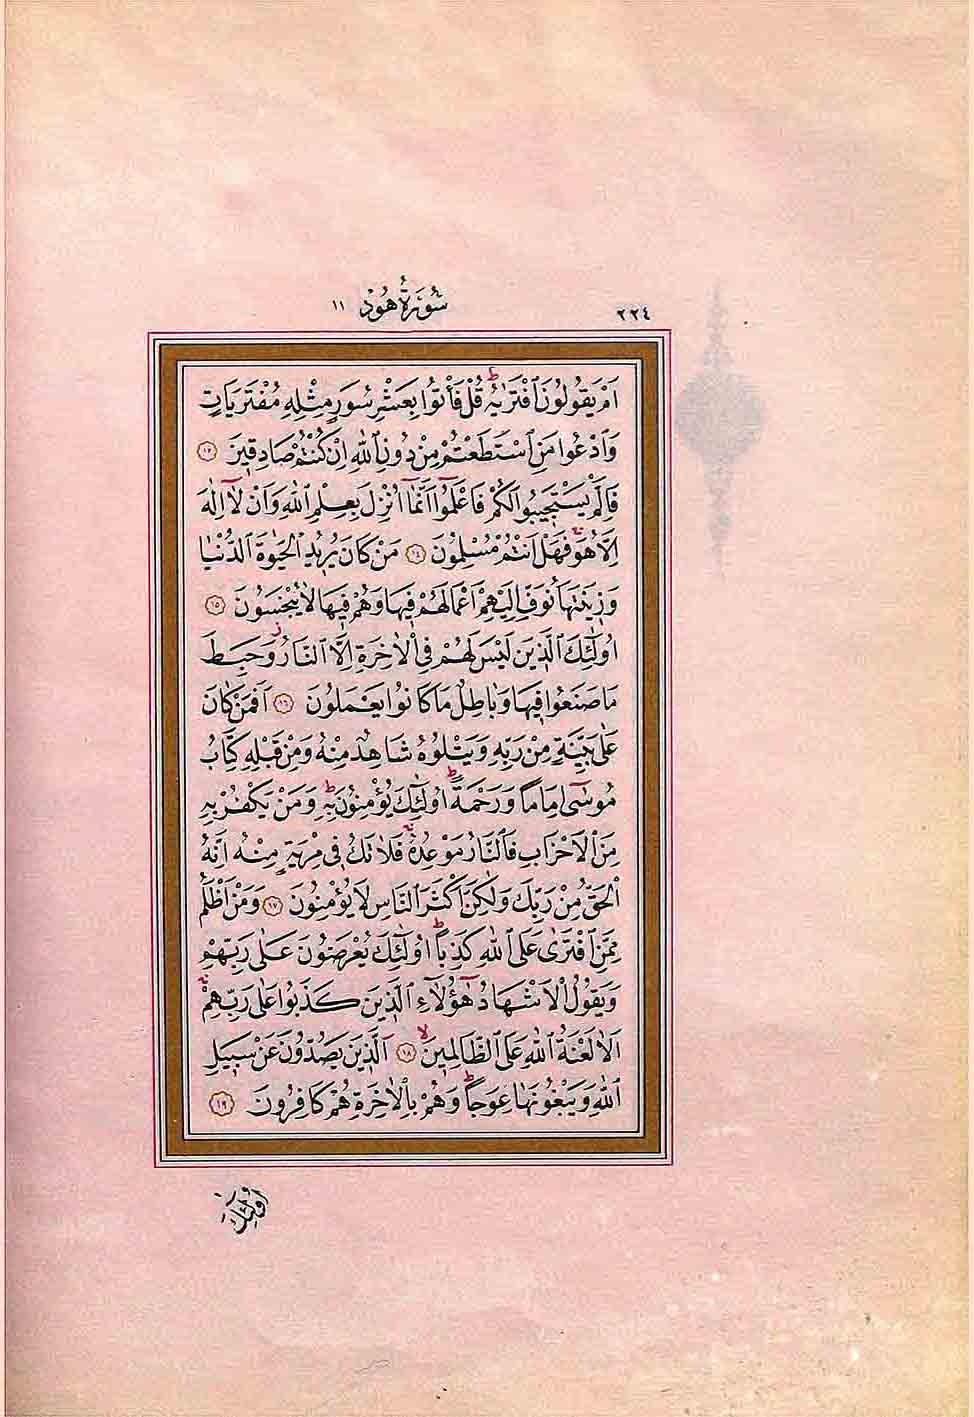 ٢٢٤ سُورَةُ هُودٍ ١١
اَمْ يَقُولُونَ افْتَرٰيهُۜ قُلْ فَأْتُوا بِعَشْرِ سُوَرٍ مِثْلِهِ مُفْتَرَيَاتٍ
وَادْعُوا مَنِ اسْتَطَعْتُمْ مِنْ دُونِ اللّٰهِ اِنْ كُنْتُمْ صَادِقِينَ ١٣
فَاِلَّمْ يَسْتَجِيبُوا لَكُمْ فَاعْلَمُٓوا اَنَّمَٓا اُنْزِلَ بِعِلْمِ اللّٰهِ وَاَنْ لَٓا اِلٰهَ
اِلَّا هُوَۚ فَهَلْ اَنْتُمْ مُسْلِمُونَ ١٤ مَنْ كَانَ يُرِيدُ الْحَيٰوةَ الدُّنْيَا
وَزِينَتَهَا نُوَفِّ اِلَيْهِمْ اَعْمَالَهُمْ فِيهَا وَهُمْ فِيهَا لَا يُبْخَسُونَ ١٥
اُو۬لٰٓئِكَ الَّذِينَ لَيْسَ لَهُمْ فِي الْاٰخِرَةِ اِلَّا النَّارُۘ وَحَبِطَ
مَا صَنَعُوا فِيهَا وَبَاطِلٌ مَا كَانُوا يَعْمَلُونَ ١٦ اَفَمَنْ كَانَ
عَلٰى بَيِّنَةٍ مِنْ رَبِّهِ وَيَتْلُوهُ شَاهِدٌ مِنْهُ وَمِنْ قَبْلِهِ كِتَابُ
مُوسٰٓى اِمَامًا وَرَحْمَةًۜ اُو۬لٰٓئِكَ يُؤْمِنُونَ بِهِۜ وَمَنْ يَكْفُرْ بِهِ
مِنَ الْاَحْزَابِ فَالنَّارُ مَوْعِدُهُۚ فَلَا تَكُ فِي مِرْيَةٍ مِنْهُ اِنَّهُ
الْحَقُّ مِنْ رَبِّكَ وَلٰكِنَّ اَكْثَرَ النَّاسِ لَا يُؤْمِنُونَ ١٧ وَمَنْ اَظْلَمُ
مِمَّنِ افْتَرٰى عَلَى اللّٰهِ كَذِبًاۜ اُو۬لٰٓئِكَ يُعْرَضُونَ عَلٰى رَبِّهِمْ
وَيَقُولُ الْاَشْهَادُ هٰٓؤُ۬لَٓاءِ الَّذِينَ كَذَبُوا عَلٰى رَبِّهِمْۚ
اَلَا لَعْنَةُ اللّٰهِ عَلَى الظَّالِمِينَۙ ١٨ اَلَّذِينَ يَصُدُّونَ عَنْ سَبِيلِ
اللّٰهِ وَيَبْغُونَهَا عِوَجًاۜ وَهُمْ بِالْاٰخِرَةِ هُمْ كَافِرُونَ ١٩
اُو۬لٰٓئِكَ